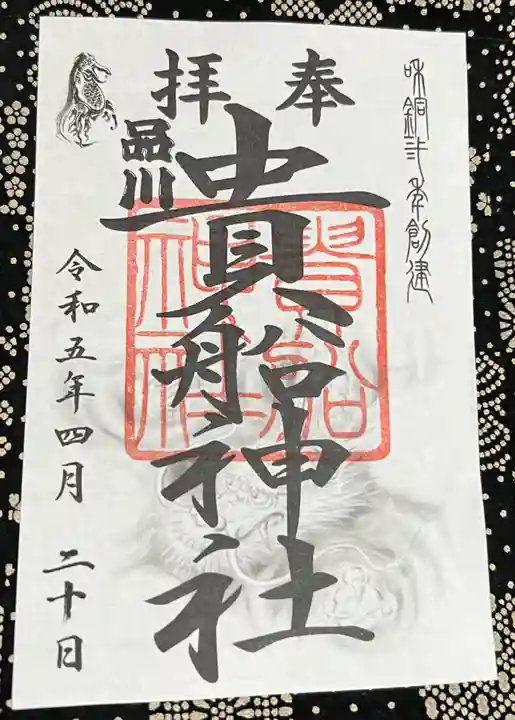 奉拝
和銅弍年創建
品川
貴船神社
貴船神社
令和五年四月 二十日